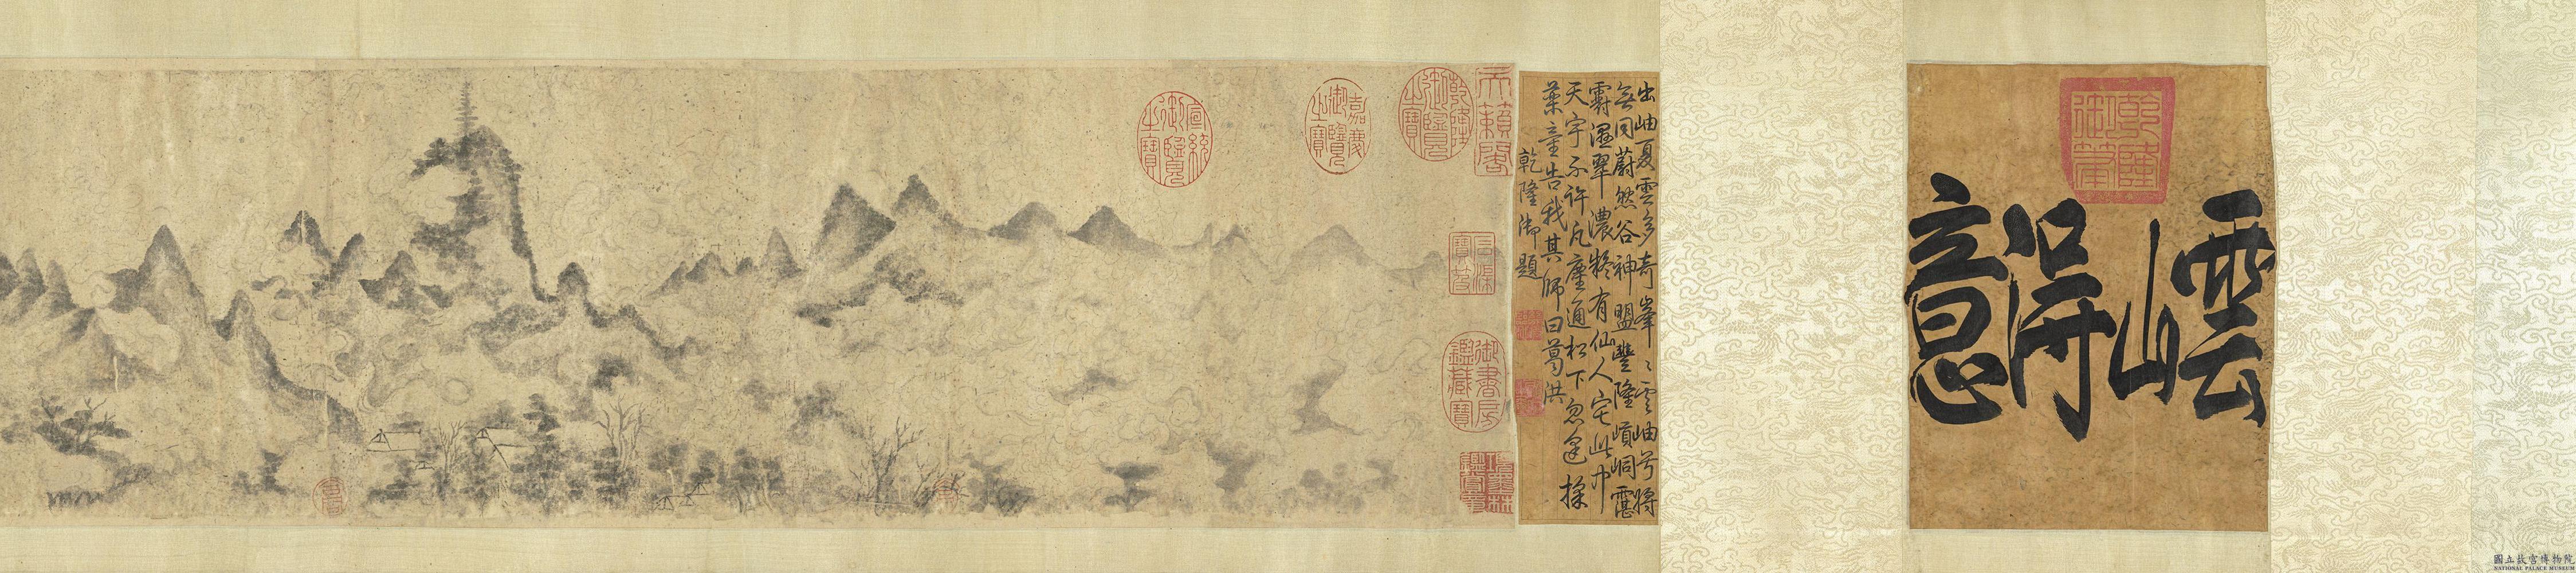 雲山得意
乾隆御筆
出岫夏雲多奇峯〻雲岫兮將
無同蔚然谷神盟豐隆峒
霨濕翠濃凝有仙人宅此中
天宇不許凡塵通松下忽逢採
藥童告我其師曰葛洪
乾隆御題
天籟閣
乾隆御覽之寶
嘉慶御覽之寶
宣統御覽之寶
石渠寶笈
御書房鑑藏寶
項墨林鑑賞章
國立故宮博物院
NATIONAL PALACE MUSEUM